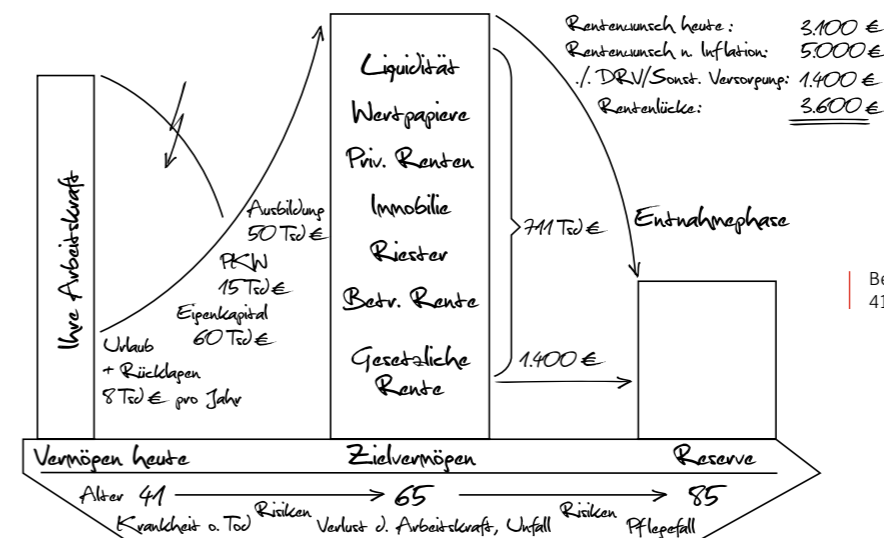 Rentenwunsch heute: 3.100 €
Rentenwunsch n. Inflation: 5.000 €
./. DRV/Sonst. Versorgung: 1.400 €
Rentenlücke: 3.600 €
Ihre Arbeitskraft
Ausbildung
50 Tsd €
PKW
15 Tsd €
Eigenkapital
60 Tsd €
Urlaub
+ Rücklagen
8 Tsd € pro Jahr
Liquidität
Wertpapiere
Priv. Renten
Immobilie
Riester
Betr. Rente
Gesetzliche
Rente
711 Tsd €
1.400 €
Entnahmephase
Be
41
Vermögen heute Zielvermögen Reserve
Alter 41 Risiken 65 Risiken 85
Krankheit o. Tod Verlust d. Arbeitskraft, Unfall Pflegefall